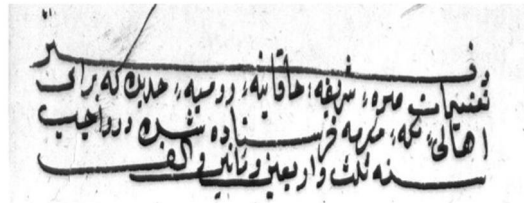 دفتر
تقسیمات صره شریفه خاقانیه رومیه جدیده که برای
اهالی مکه مکرمه فرستاده شده در واجب
سنه ثلث و اربعین و الف